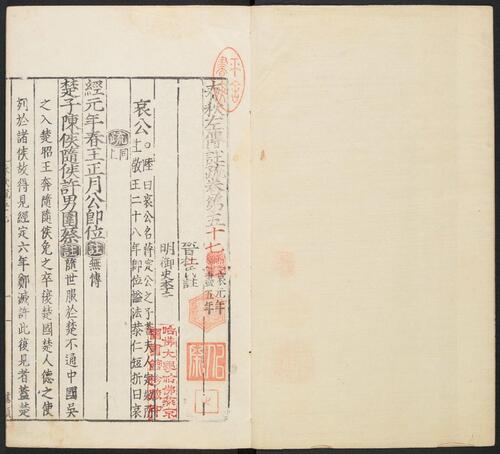 春秋左傳註疏卷第五十七 哀元年 盡五年
晉杜氏註
明御史李
哀公 ○陸曰哀公名蔣定公之子蓋夫人定姒所
生敬王二十八年即位諡法恭仁短折曰哀
疏 同上
經元年春王正月公即位 註 無傳
楚子陳侯隨侯許男圍蔡 註 隨世服於楚不通中國吳
之入楚昭王奔隨隨侯免之卒復楚國楚人德之使
列於諸侯故得見經定六年鄭滅許此復見者蓋楚
哈佛大學哈佛燕京
圖書館珍藏印